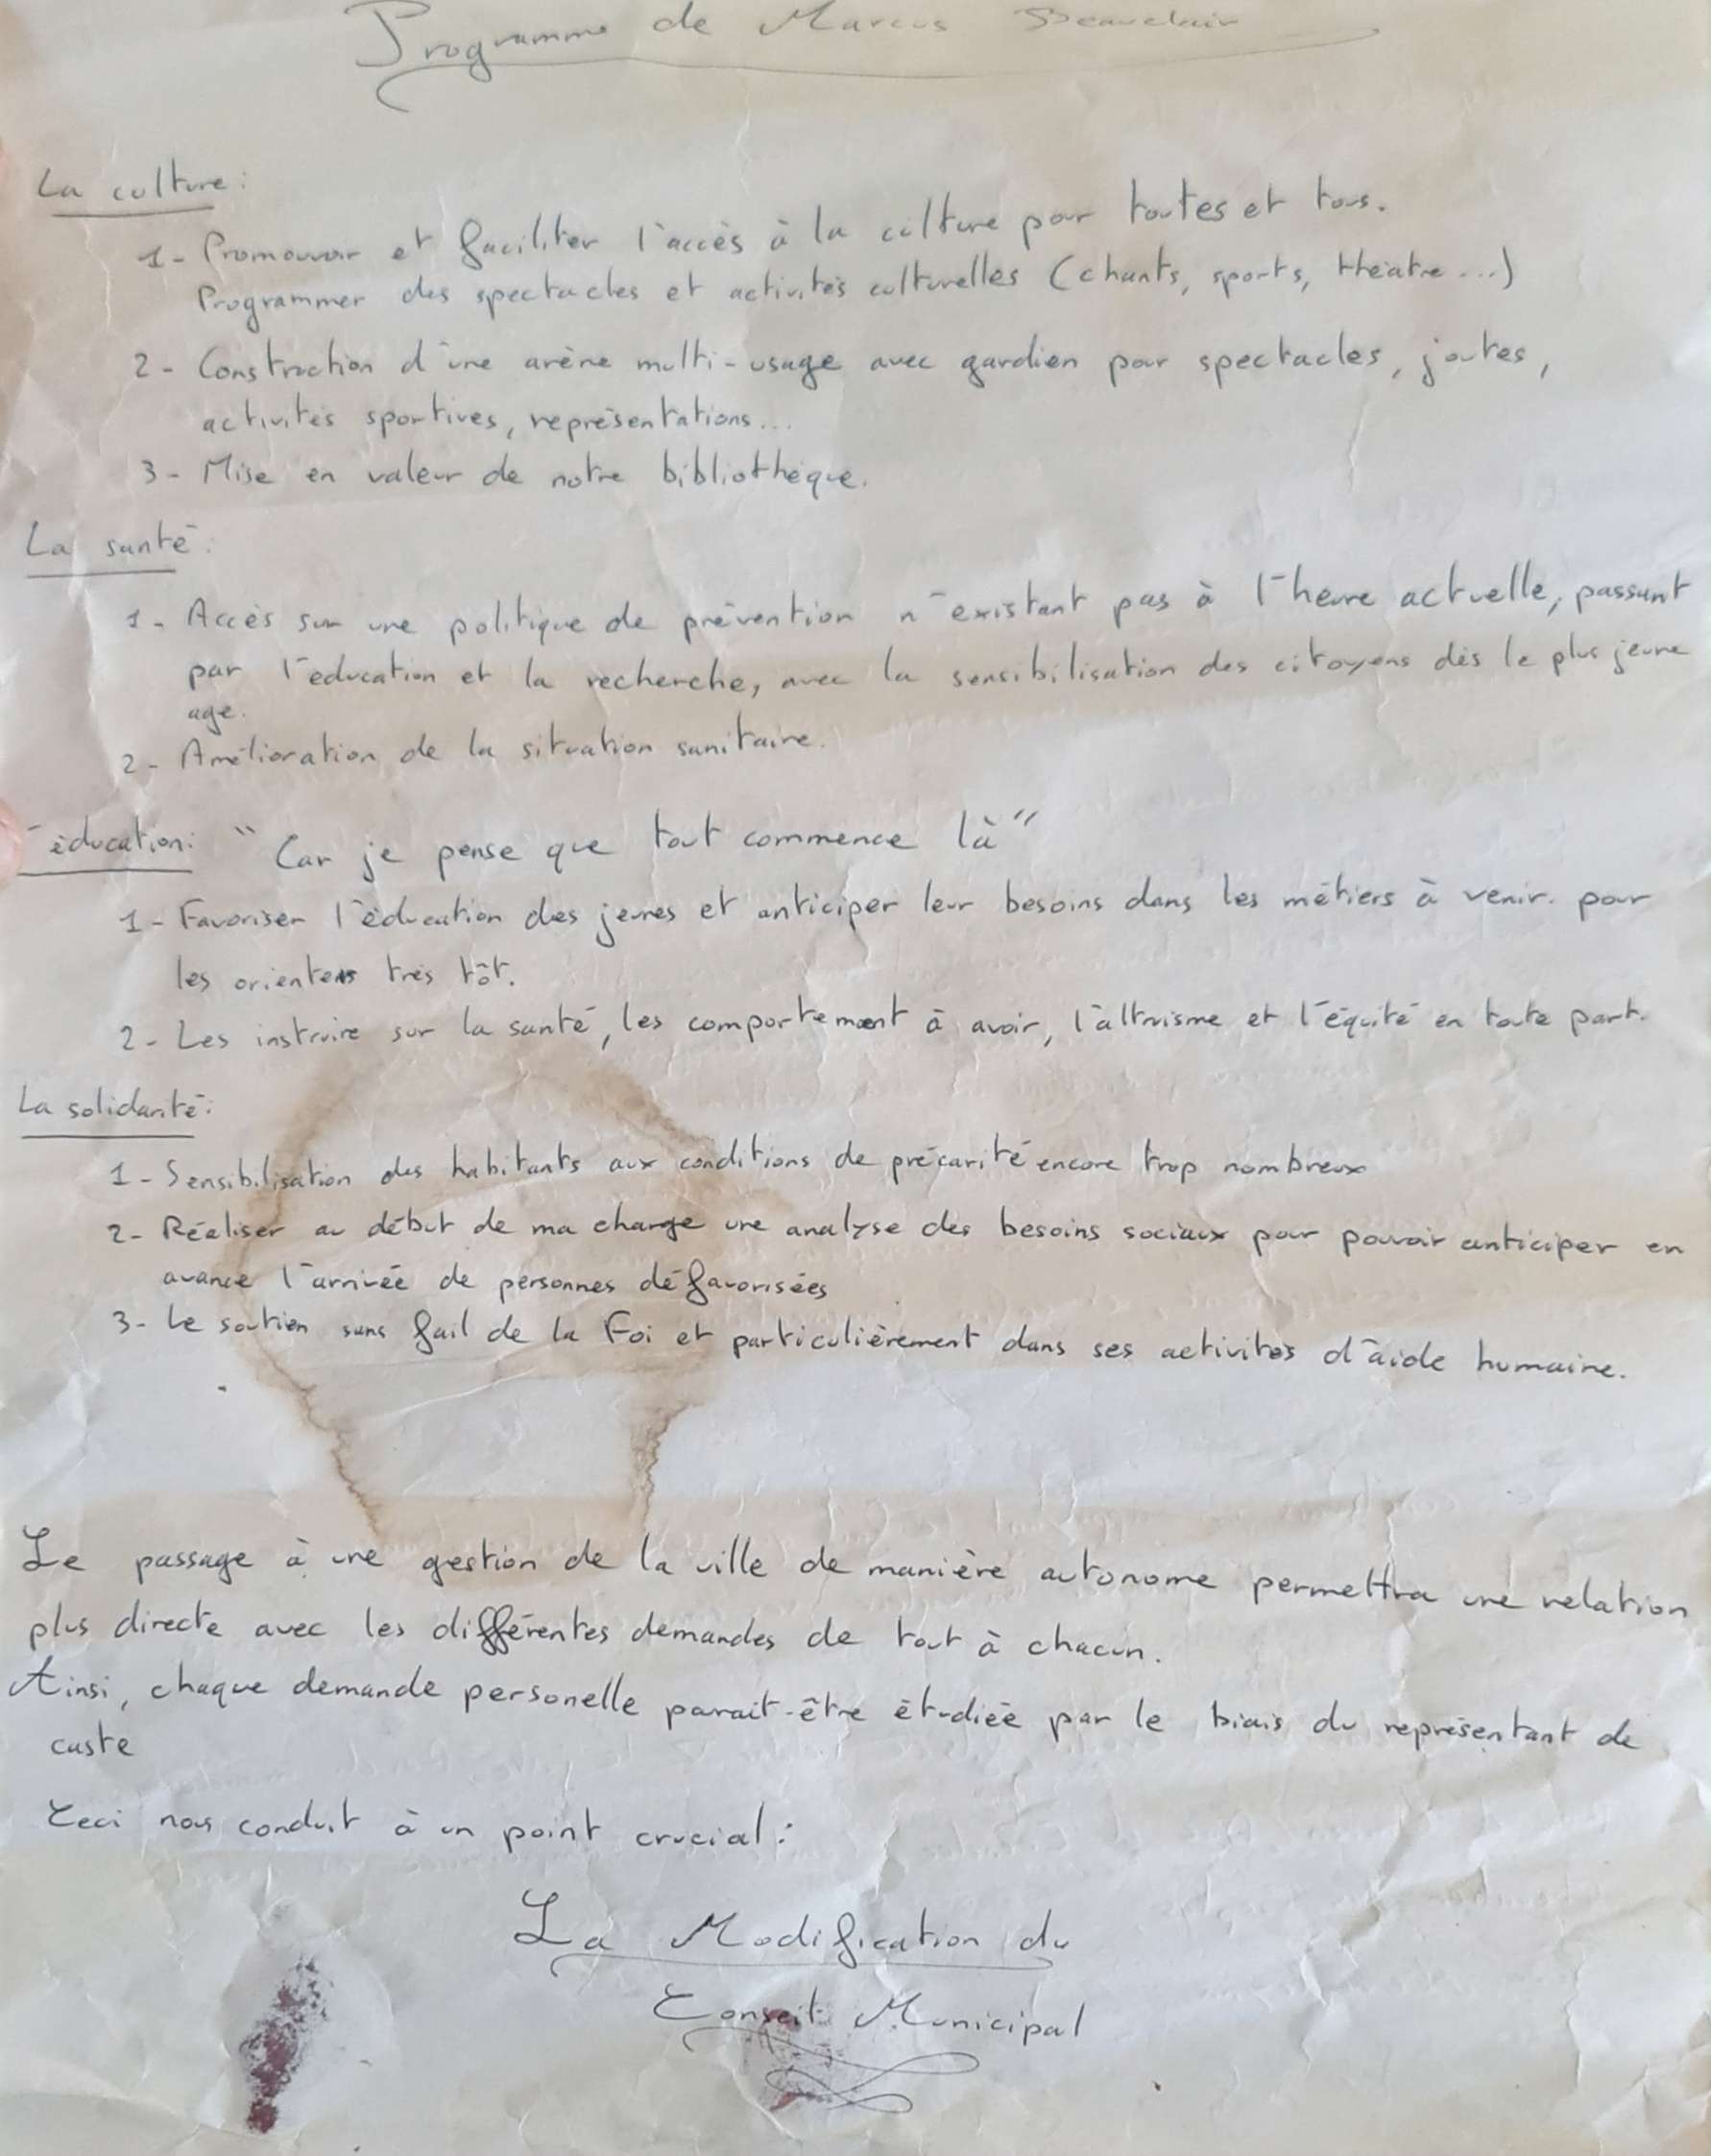 Programme de Marcus Beauclair
La culture:
1- Promouvoir et faciliter l'accès à la culture pour toutes et tous.
Programmer des spectacles et activités culturelles (chants, sports, théatre...)
2- Construction d'une arène multi-usage avec gardien pour spectacles, joutes,
activités sportives, représentations...
3- Mise en valeur de notre bibliothèque.
La santé:
1- Accès sur une politique de prévention n'existant pas à l'heure actuelle, passant
par l'éducation et la recherche, avec la sensibilisation des citoyens dès le plus jeune
age.
2- Amélioration de la situation sanitaire.
éducation: "Car je pense que tout commence là"
1- Favoriser l'éducation des jeunes et anticiper leur besoins dans les métiers à venir. pour
les orienters très tôt.
2- Les instruire sur la santé, les comportement à avoir, l'altruisme et l'équité en toute part.
La solidarité:
1- Sensibilisation des habitants aux conditions de précarité encore trop nombreux
2- Réaliser au début de ma charge une analyse des besoins sociaux pour pouvoir anticiper en
avance l'arrivée de personnes défavorisées
3- Le soutien sans fail de la Foi et particulièrement dans ses activités d'aide humaine.
Le passage à une gestion de la ville de manière autonome permettra une relation
plus directe avec les différentes demandes de tout à chacun.
Ainsi, chaque demande personelle parait-être étudiée par le biais du représentant de
caste
Ceci nous conduit à un point crucial:
La Modification du
Conseil Municipal